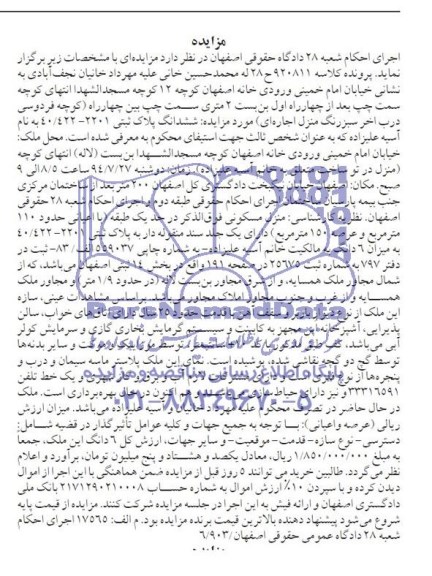 مزایده
اجرای احکام شعبه ۲۸ دادگاه حقوقی اصفهان در نظر دارد مزایده‌ای با مشخصات زیر برگزار
نماید. پرونده کلاسه ۹۲۰۸۱۱ ح ۲۸ له محمدحسین خانی علیه مهرداد خانیان نجف‌آبادی به
نشانی خیابان امام خمینی ورودی خانه اصفهان کوچه ۱۲ کوچه مسجدالشهدا انتهای کوچه
سمت چپ بعد از چهارراه اول بن‌بست ۲ متری سمت چپ بین چهارراه (کوچه فردوسی
درب آخر سبزرنگ منزل اجاره‌ای) مورد مزایده: ششدانگ پلاک ثبتی ۲۲۰۱- ۴۰/۴۲۲ به نام
آسیه علیزاده که به عنوان شخص ثالث جهت استیفای محکوم به معرفی شده است. محل ملک:
خیابان امام خمینی ورودی خانه اصفهان کوچه مسجدالشهدا بن‌بست (لاله) انتهای کوچه
(منزل در تو ساخت متعلق به خانم آسیه علیزاده). زمان: دوشنبه ۹۴/۷/۲۷ ساعت ۸/۵ الی ۹
صبح. مکان: اصفهان خیابان نیکبخت دادگستری کل اصفهان ۲۰۰ متر بعد از ساختمان مرکزی
جنب بیمه پارسیان ساختمان اجرای احکام حقوقی طبقه دوم اجرای احکام شعبه ۲۸ حقوقی
اصفهان. نظریه کارشناسی: منزل مسکونی فوق‌الذکر در حد یک طبقه با اعیانی حدود ۱۱۰
مترمربع و عرصه ۱۵۰ مترمربع) دارای یک جلد سند منقوله دار به پلاک ثبتی ۲۲۰۱- ۴۰/۴۲۲
به میزان ۶ دانگ به مالکیت خانم آسیه علیزاده- به شماره چاپی ۵۵۹۰۳۷ الف/ ۸۳- ثبت در
دفتر ۷۹۷ به شماره ثبت ۲۵۶۷۵ در صفحه ۱۹۱ واقع در بخش ۱۴ ثبتی اصفهان می‌باشد، که از
شمال مجاور ملک همسایه، و از شرق مجاور بن‌بست لاله (در حدود ۱/۹ متر) و مجاور ملک
همسایه و از غرب و جنوب مجاور املاک مجاور می‌باشد. براساس مشاهدات عینی، سازه
این ملک از نوع دیوار باربر و سقف آهن با قدمت حدود ۲۵ سال دارای اتاق‌های خواب، سالن
پذیرایی، آشپزخانه این مجهز به کابینت و سیستم گرمایش بخاری گازی و سرمایش کولر
آبی می‌باشد.
توسط گچ دو گچه نقاشی شده، پوشیده است. نمای این ملک پلاستر ماسه سیمان و درب و
پنجره‌ها از نوع فلزی است و
۳۳۳۱۶۵۹۱ و نیز دارای حیاط‌سازی می‌باشد و هم اکنون در حال بهره‌برداری است. ملک
در حال حاضر در تصرف محکوم علیه و آسیه علیزاده می‌باشد. میزان ارزش
ریالی (عرصه واعیانی): با توجه به جمیع جهات و کلیه عوامل تأثیرگذار در قضیه شامل:
دسترسی- نوع سازه- قدمت- موقعیت- و سایر جهات، ارزش کل ۶ دانگ این ملک، جمعاً
به مبلغ ۱/۸۵۰/۰۰۰/۰۰۰ ریال، معادل یکصد و هشتاد و پنج میلیون تومان، برآورد و اعلام
نظر می‌گردد. طالبین خرید می توانند ۵ روز قبل از مزایده ضمن هماهنگی با این اجرا از اموال
دیدن کرده و با سپردن ۱۰٪ ارزش اموال به شماره حساب ۲۱۷۱۲۹۰۲۱۰۰۰۸ بانک ملی
دادگستری اصفهان و ارائه فیش به این اجرا در جلسه مزایده شرکت کنند. مزایده از قیمت پایه
شروع می‌شود پیشنهاد دهنده بالاترین قیمت برنده مزایده بود. م الف: ۱۷۵۶۵ اجرای احکام
شعبه ۲۸ دادگاه عمومی حقوقی اصفهان/۶/۹۰۳
پایگاه اطلاع‌رسانی مناقصه و مزایده
۰۲۱-۸۸۳۴۹۶۷۰-۵